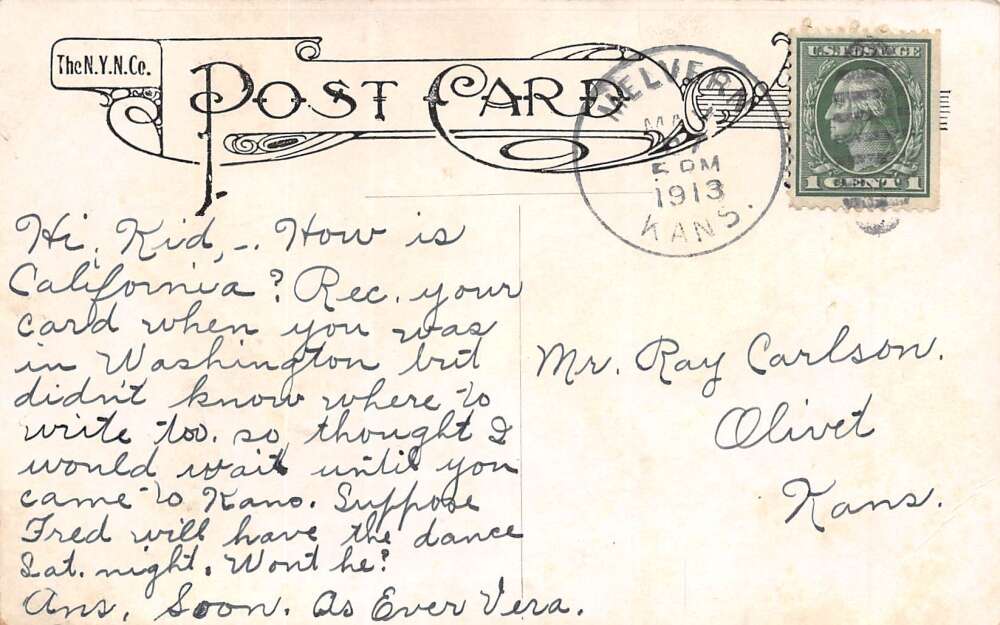 The N.Y.N.Co.
POST CARD
MELVERN
5 PM
1913
KANS.
U.S. POSTAGE
1 CENT 1
Hi, Kid, -. How is
California? Rec. your
card when you was
in Washington but
didn't know where to
write too. so, thought I
would wait until you
came to Kans. Suppose
Fred will have the dance
Sat. night. Wont he?
Ans. Soon. As Ever Vera.
Mr. Ray Carlson.
Olivet
Kans.